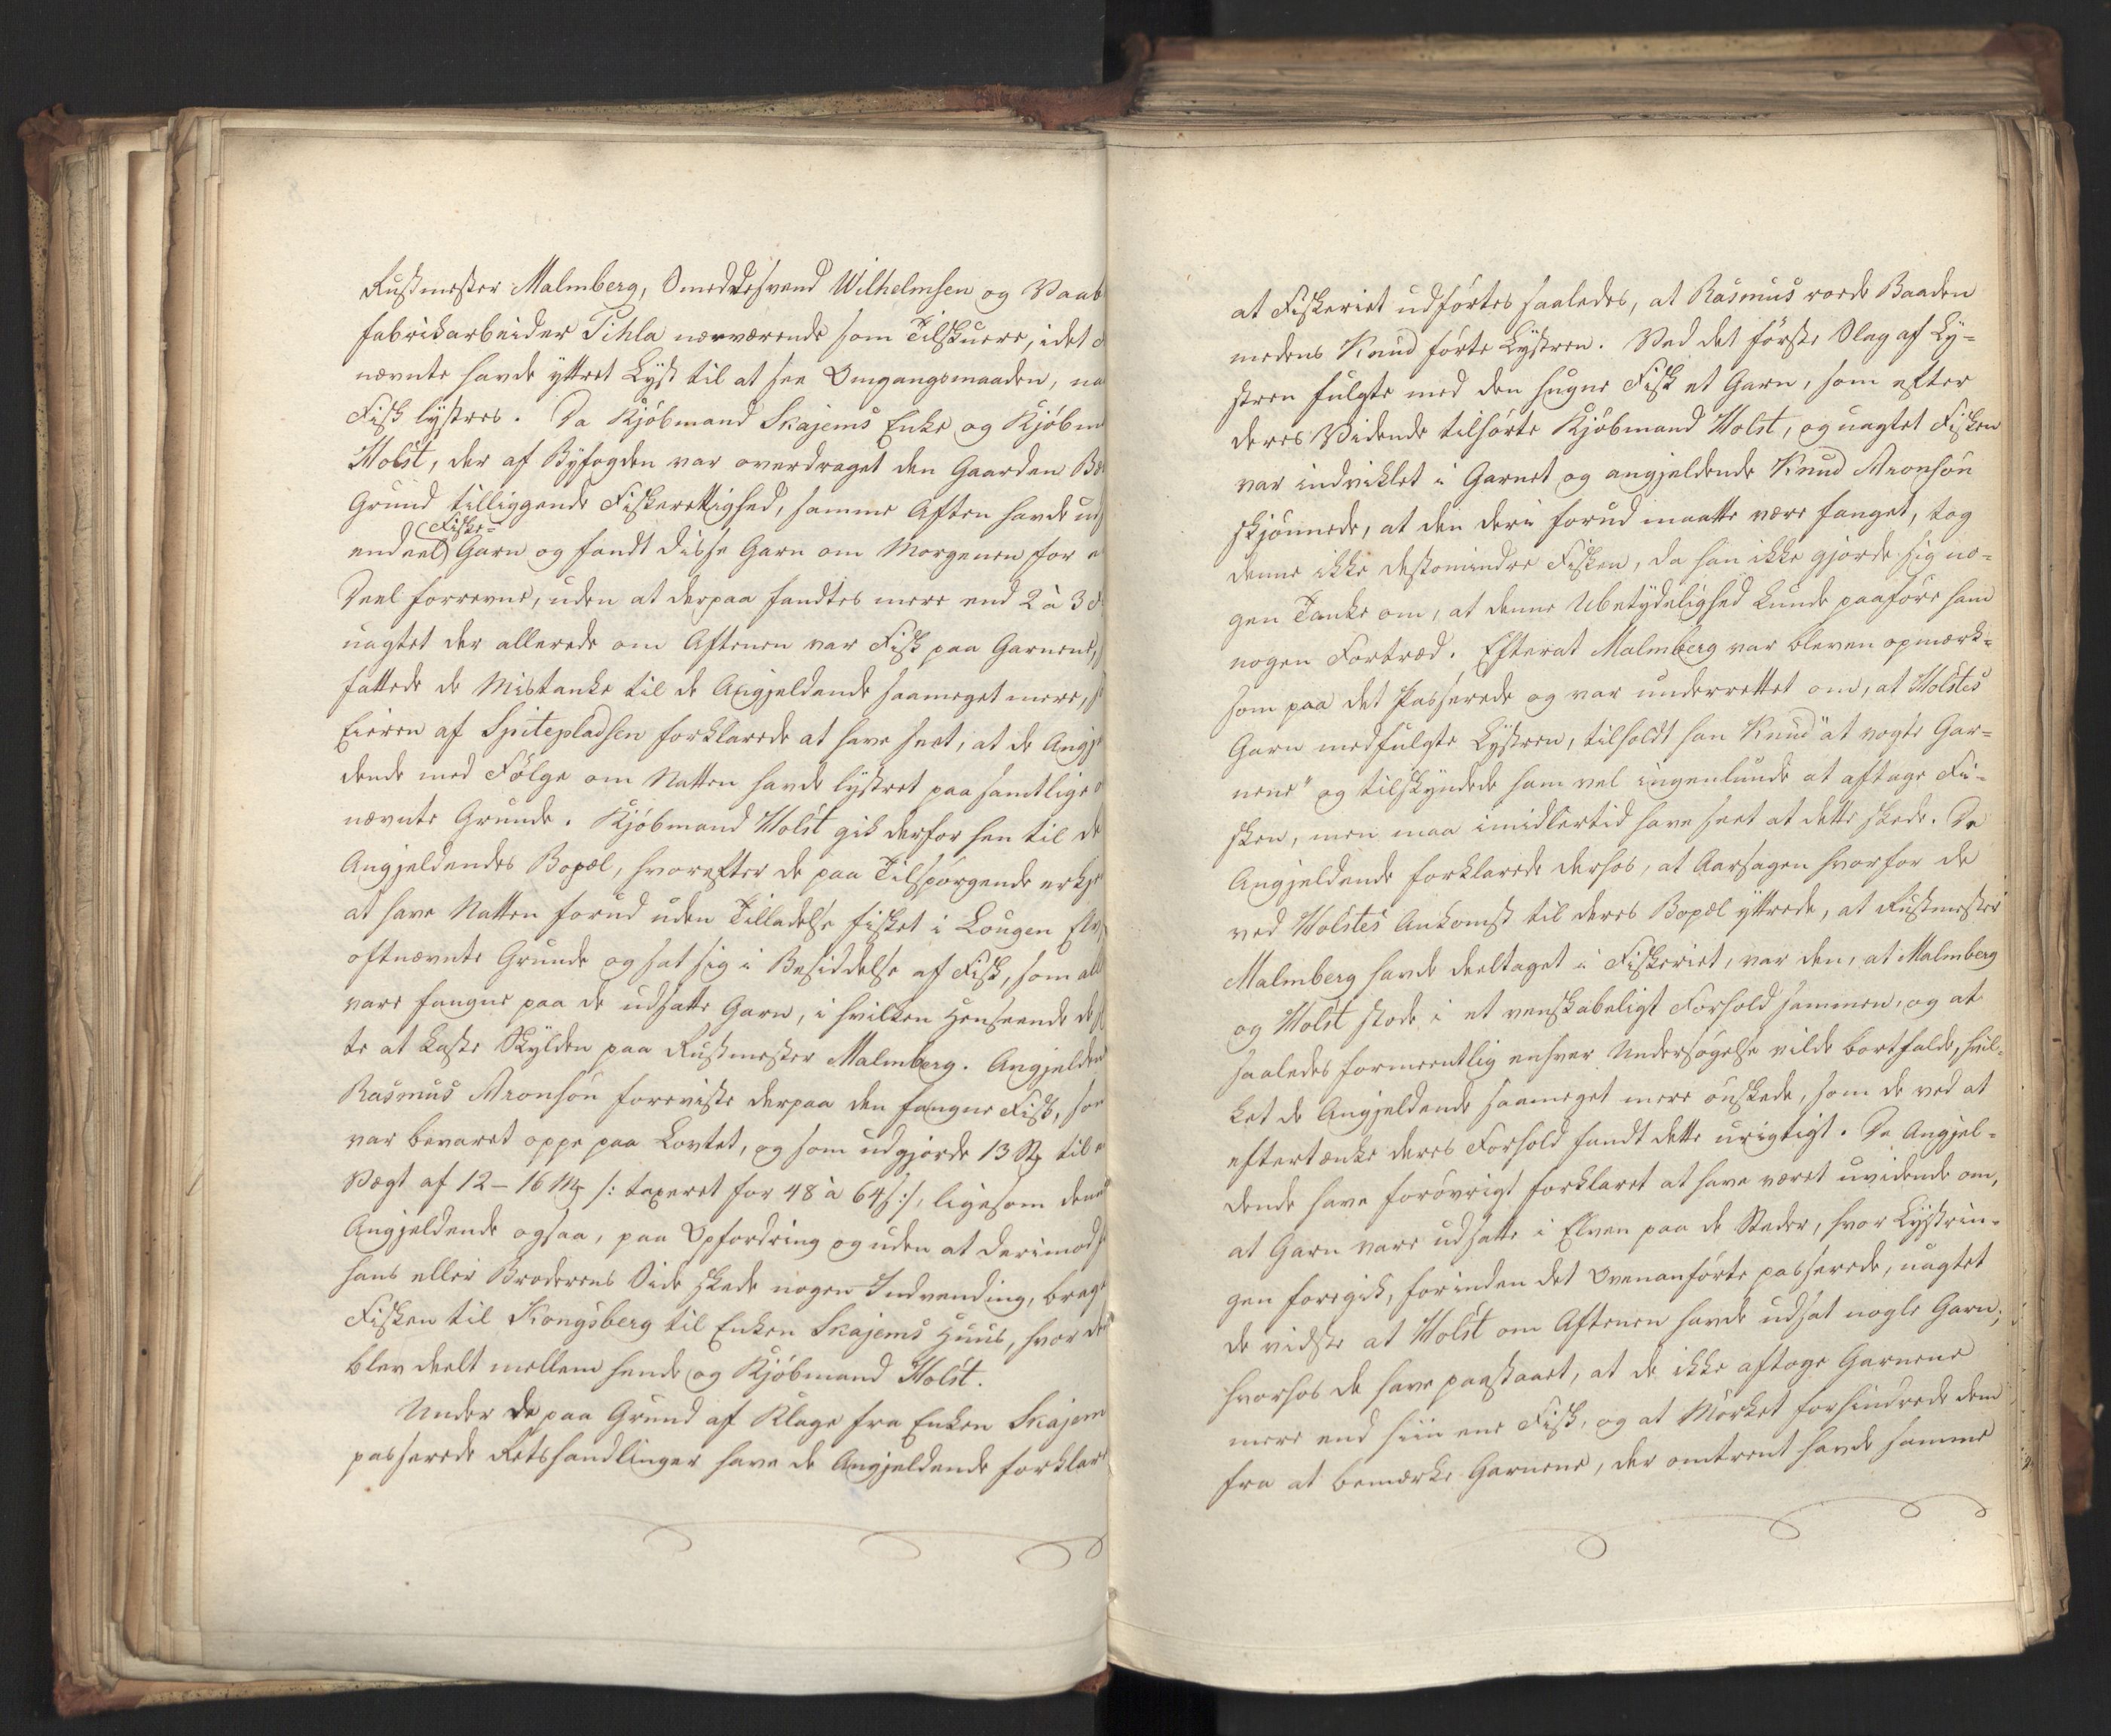 Rustmester Malmberg, Smeddesvend Wilhelmsen og Vaab
fabrikarbeider Pihla nærværende som Tilskuere, idet
nævnte havde yttret Lyst til at see Omgangsmaaden, na
Fisk lystres. Da Kjøbmand Skajems Enke og Kjøbm
Holst, der af Byfogden var overdraget den Gaarden
Grund tilliggende Fiskerettighed, samme Aften havde ud
endeel Fiske-Garn og fandt disse Garn om Morgenen for
Deel forrevne, uden at derpaa fandtes mere end 2 à 3
uagtet der allerede om Aftenen var Fisk paa Garnene,
fattede de Mistanke til de Angjeldende saameget mere,
Eieren af Spitepladsen forklarede at have seet, at de Angje
dende med Følge om Natten havde lystret paa samtlige
nævnte Grunde. Kjøbmand Holst gik derfor hen til de
Angjeldendes Bopæl, hvorefter de paa Tilspørgende erkje
at have Natten forud uden Tilladelse fisket i Lougen Elv,
oftnævnte Grunde og sat sig i Besiddelse af Fisk, som all
vare fangne paa de udsatte Garn, i hvilken Henseende de
te at kaste Skylden paa Rustmester Malmberg. Angjelden
Rasmus Aronsøn foreviste derpaa den fangne Fisk, som
var bevaret oppe paa Lovtet, og som udgjorde 13 St til
Vægt af 12 - 16 Mk /: taxeret for 48 à 64 s :/, ligesom denne
Angjeldende ogsaa, paa Opfordring og uden at derimod
hans eller Broderens Side skede nogen Indvending, bragt
Fisken til Kongsberg til Enken Skajems Huus, hvor den
blev deelt mellem hende og Kjøbmand Holst.
Under de paa Grund af Klage fra Enken Skajem
passerede Retshandlinger have de Angjeldende forklare
at Fiskeriet udførtes saaledes, at Rasmus roede Baaden
medens Knud førte Lystren. Ved det første Slag af Ly-
stren fulgte med den hugne Fisk et Garn, som efter
deres Vidende tilhørte Kjøbmand Holst, og uagtet Fisken
var indviklet i Garnet og angjeldende Knud Aronsøn
skjønnede, at den deri forud maatte være fanget, tog
denne ikke destomindre Fisken, da han ikke gjorde sig no-
gen Tanke om, at denne Ubetydelighed kunde paaføre ham
nogen Fortræd. Efterat Malmberg var bleven opmærk-
som paa det Passerede og var underrettet om, at Holstes
Garn medfulgte Lystren, tilholdt han Knud "at vogte Gar-
nene" og tilskyndede ham vel ingenlunde at aftage Fi-
sken, men maa imidlertid have seet at dette skede. De
Angjeldende forklarede derhos, at Aarsagen hvorfor de
ved Holstes Ankomst til deres Bopæl yttrede, at Rustmester
Malmberg havde deeltaget i Fiskeriet, var den, at Malmberg
og Holst stode i et venskabeligt Forhold sammen, og at
saaledes formeentlig enhver Undersøgelse vilde bortfalde, hvil-
ket de Angjeldende saameget mere ønskede, som de ved at
eftertænke deres Forhold fandt dette urigtigt. De Angjel-
dende have forøvrigt forklaret at have været uvidende om,
at Garn vare udsatte i Elven paa de Steder, hvor Lystrin-
gen foregik, forinden det Ovenanførte passerede, uagtet
de vidste at Holst om Aftenen havde udsat nogle Garn;
hvorhos de have paastaaet, at de ikke aftoge Garnene
mere end hiin ene Fisk, og at Mørket forhindrede dem
fra at bemærke Garnene, der omtrent havde samme